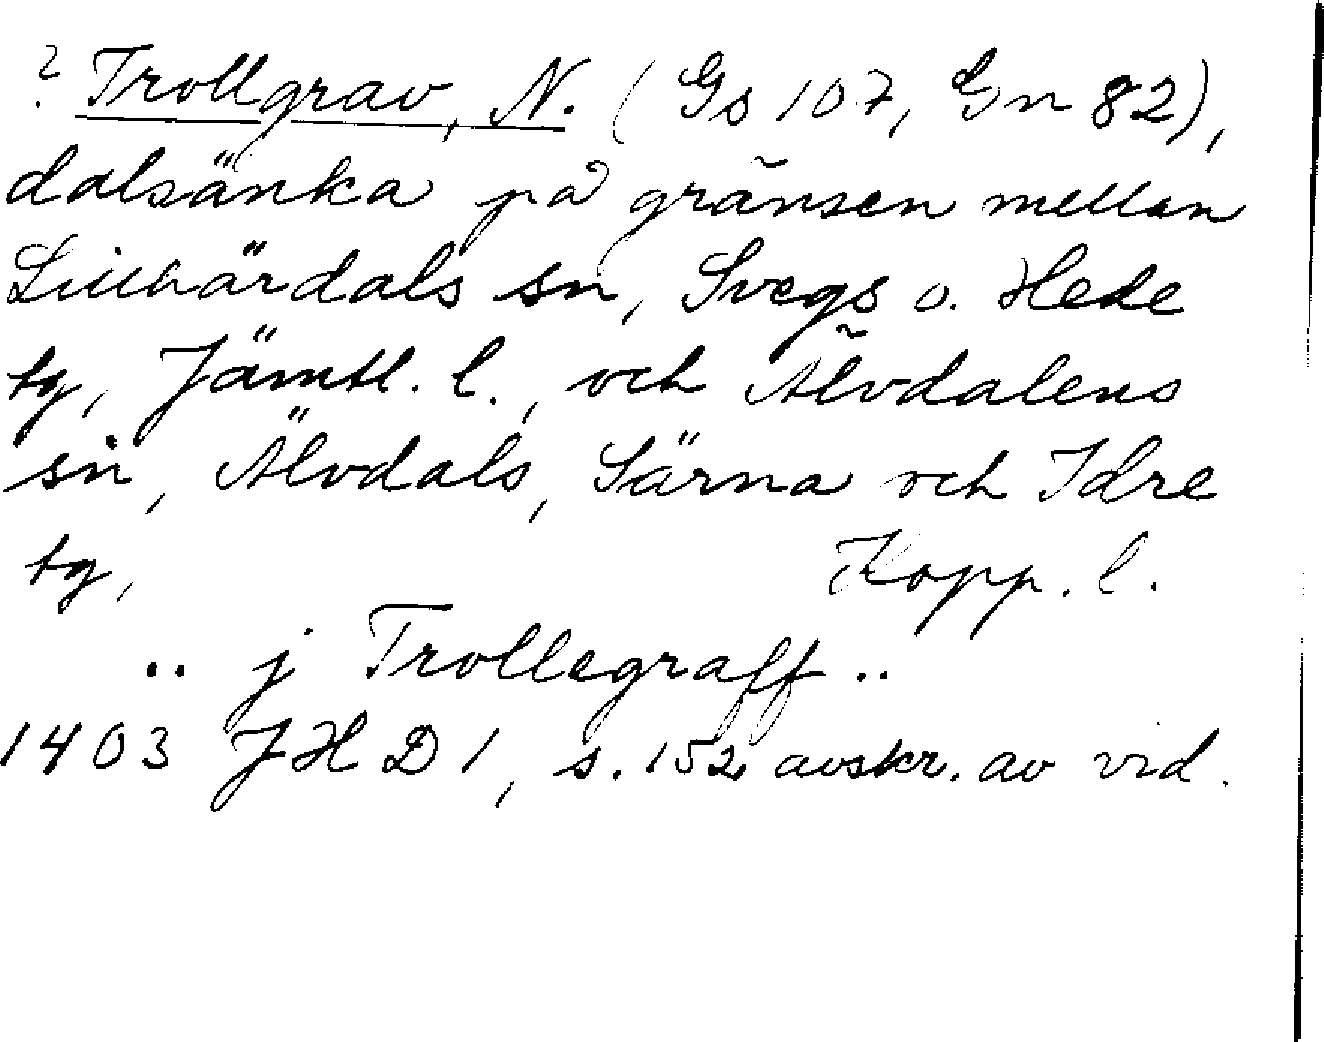 ? Trollgrav, N. (Gs 107, Gn 82),
dalsänka på gränsen mellan
Lillhärdals sn, Svegs o. Hede
tg, Jämtl. l., och Älvdalens
sn, Älvdals, Särna och Idre
tg, Kopp. l.
.. j Trollegraff ..
1403 JHD 1, s. 152 avskr. av vid.